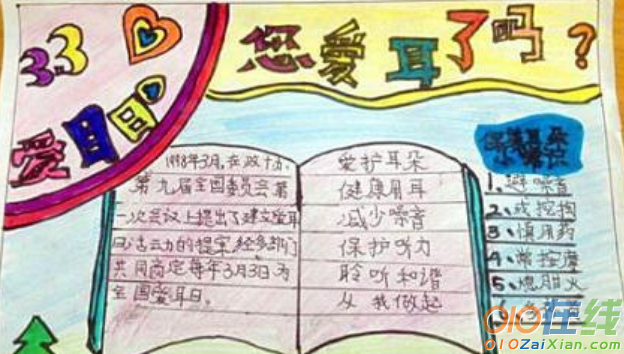 3.3
爱耳日
您爱耳了吗?
1998年3月,在政十办、
第九届全国委员会第
一次会议上提出了建立爱耳
日活动的提案,经多部门
共同商定每年3月3日为
全国爱耳日。
爱护耳朵
健康用耳
减少噪音
保护听力
聆听和谐
从我做起
1、避噪音
2、戒挖掏
3、慎用药
4、常按摩
5、熄肝火
6、
010在线
010ZaiXian.Com